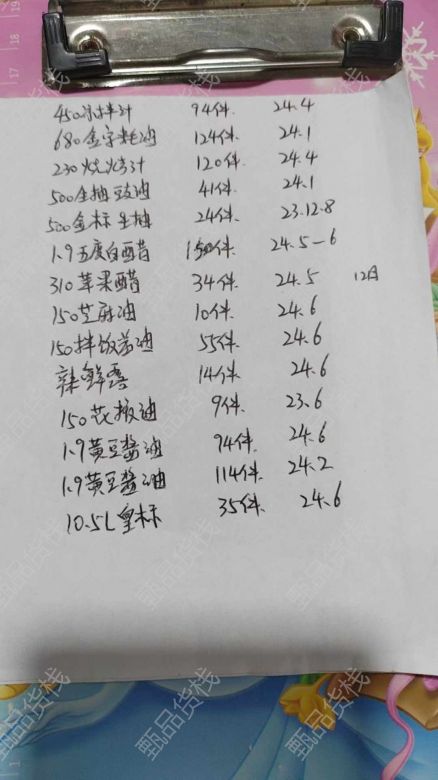 450凉拌汁 94件. 24.4
680金字耗油 124件. 24.1
230烧烤汁 120件. 24.4
500生抽豉油 41件 24.1
500金标生抽 24件. 23.12.8
1.9五度白醋 150件. 24.5-6
310苹果醋 34件. 24.5 12日
150芝麻油 10件. 24.6
150拌饭酱油 55件. 24.6
辣鲜露 14件. 24.6
150花椒油 9件. 23.6
1.9黄豆酱油 94件. 24.6
1.9黄豆酱油 114件. 24.2
10.5L皇标 35件. 24.6
甄品货栈